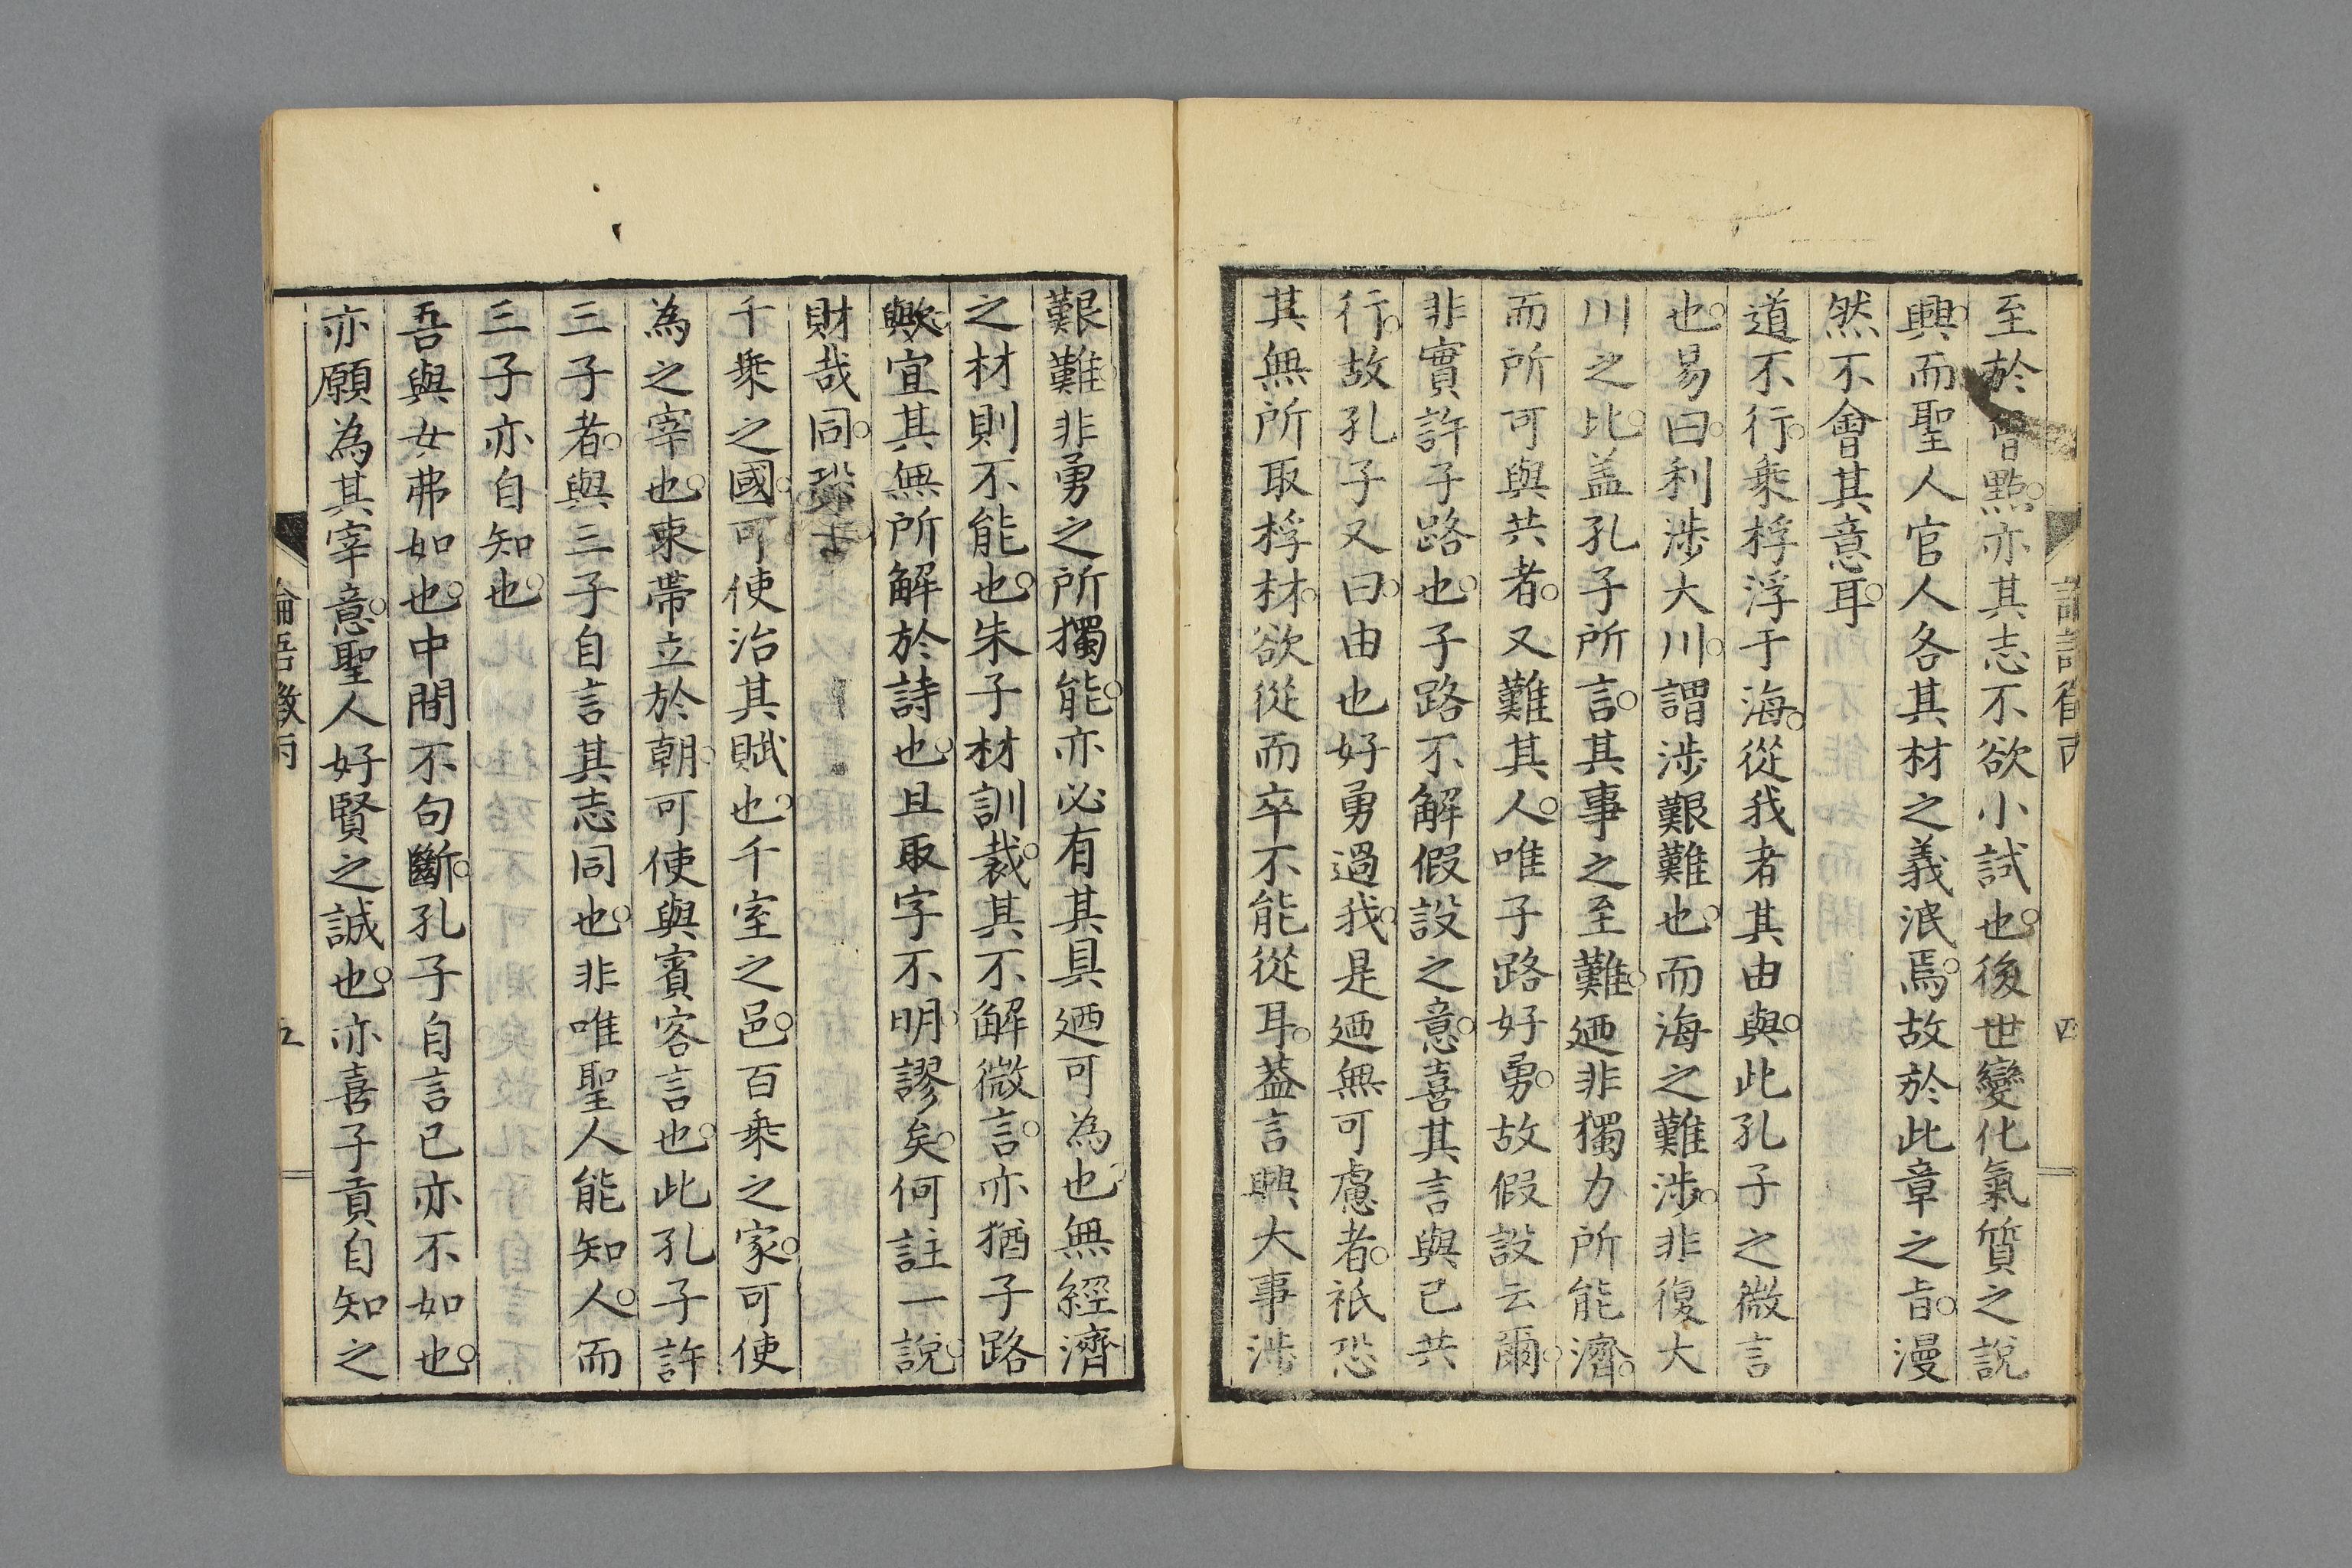 至於曾點亦其志不欲小試也後世變化氣質之說
興而聖人官人各其材之義泯焉故於此章之旨漫
然不會其意耳
道不行乘桴浮于海從我者其由與此孔子之微言
也易曰利涉大川謂涉艱難也而海之難涉非復大
川之比盖孔子所言其事之至難廼非獨力所能濟
而所可與共者又難其人唯子路好勇故假設云爾
非實許子路也子路不解假設之意喜其言與已共
行故孔子又曰由也好勇過我是廼無可慮者祇恐
其無所取桴材欲從而卒不能從耳葢言興大事涉
艱難非勇之所獨能亦必有其具廼可為也無經濟
之材則不能也朱子材訓裁其不解微言亦猶子路
歟宜其無所解於詩也且取字不明謬矣何註一說
財哉同
千乗之國可使治其賦也千室之邑百乗之家可使
為之宰也束帶立於朝可使與賓客言也此孔子許
三子者與三子自言其志同也非唯聖人能知人而
三子亦自知也
吾與女弗如也中間不句斷孔子自言已亦不如也
亦願為其宰意聖人好賢之誠也亦喜子貢自知之
論語徵丙
五